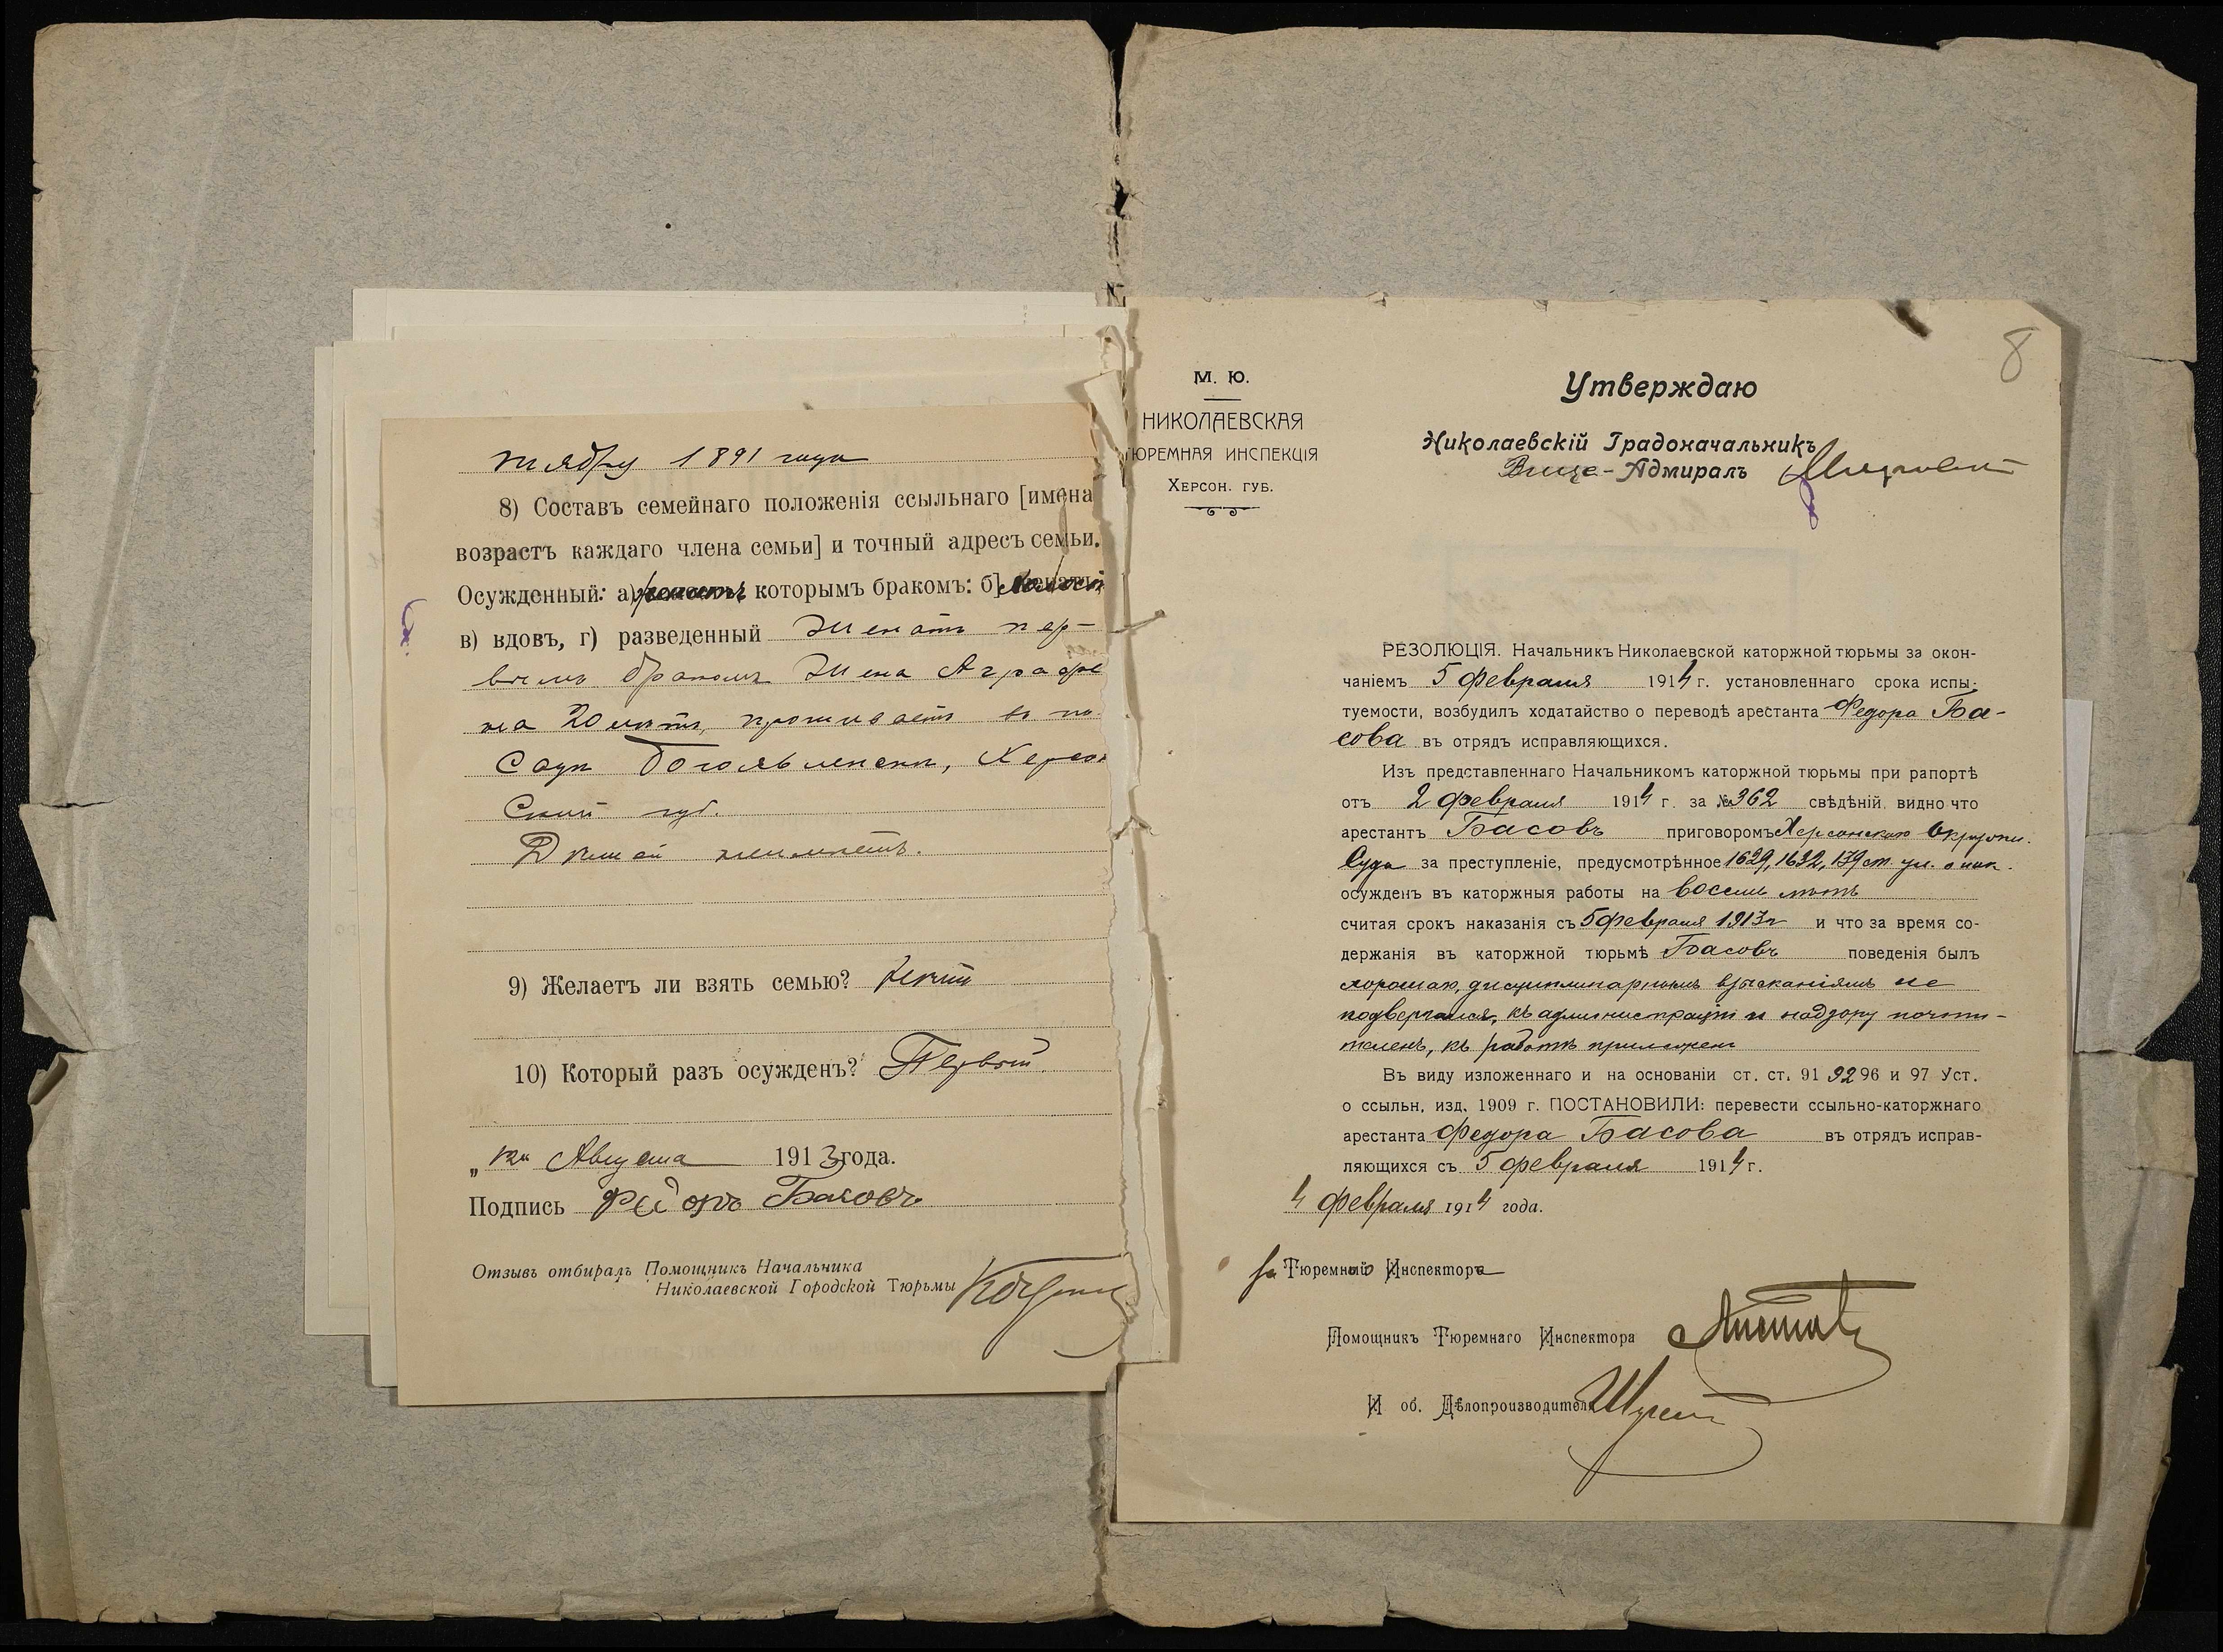 тября 1891 года
8) Составъ семейнаго положенія ссыльнаго [имена
возрастъ каждаго члена семьи] и точный адресъ семьи.
Осужденный: а) женатъ которымъ бракомъ: б)
в) вдовъ, г) разведенный Женатъ пер-
вымъ бракомъ Жена Аграфе
на 20 лѣтъ, проживаетъ въ по
Садъ Богоявленскъ, Херсон
Ской губ.
Дѣтей неимѣетъ.
9) Желаетъ ли взять семью? Нѣтъ
10) Который разъ осужденъ? Первый.
„ Августа 1913 года.
Подпись Федоръ Басовъ
Отзывъ отбиралъ Помощникъ Начальника
Николаевской Городской Тюрьмы
8
М. Ю.
НИКОЛАЕВСКАЯ
ЮРЕМНАЯ ИНСПЕКЦІЯ
ХЕРСОН. ГУБ.
Утверждаю
Николаевскій Градоначальникъ
Вице-Адмиралъ
РЕЗОЛЮЦІЯ. Начальникъ Николаевской каторжной тюрьмы за окон-
чаніемъ 5 февраля 1914 г. установленнаго срока испы-
туемости, возбудилъ ходатайство о переводѣ арестанта Федора Ба-
сова въ отрядъ исправляющихся.
Изъ представленнаго Начальникомъ каторжной тюрьмы при рапортѣ
отъ 2 февраля 1914 г. за № 362 свѣдѣній видно что
арестантъ Басовъ приговоромъ Херсонскаго Окружн.
Суда за преступленіе, предусмотрѣнное 1629, 1632, 139 ст. ул. о нак.
осужденъ въ каторжныя работы на восемь лѣтъ
считая срокъ наказанія съ 5 февраля 1913 г и что за время со-
держанія въ каторжной тюрьмѣ Басовъ поведенія былъ
хорошаго, дисциплинарнымъ взысканіямъ не
подвергался, къ администраціи и надзору почти-
теленъ, къ работѣ прилеженъ
Въ виду изложеннаго и на основаніи ст. ст. 91 92 96 и 97 Уст.
о ссыльн. изд. 1909 г. ПОСТАНОВИЛИ: перевести ссыльно-каторжнаго
арестанта Федора Басова въ отрядъ исправ-
ляющихся съ 5 февраля 1914 г.
4 февраля 1914 года.
За Тюремнаго Инспектора
Помощникъ Тюремнаго Инспектора
И об. Дѣлопроизводителя